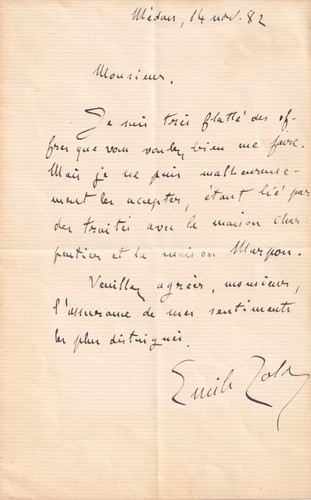 Médan, 14 nov. 82
Monsieur.
Je suis très flatté des of-
fres que vous voulez bien me faire.
Mais je ne puis malheureuse-
ment les accepter, étant lié par
des traités avec la maison Char-
pentier et la maison Marpon.
Veuillez agréer, monsieur,
l'assurance de mes sentiments
les plus distingués.
Emile Zola